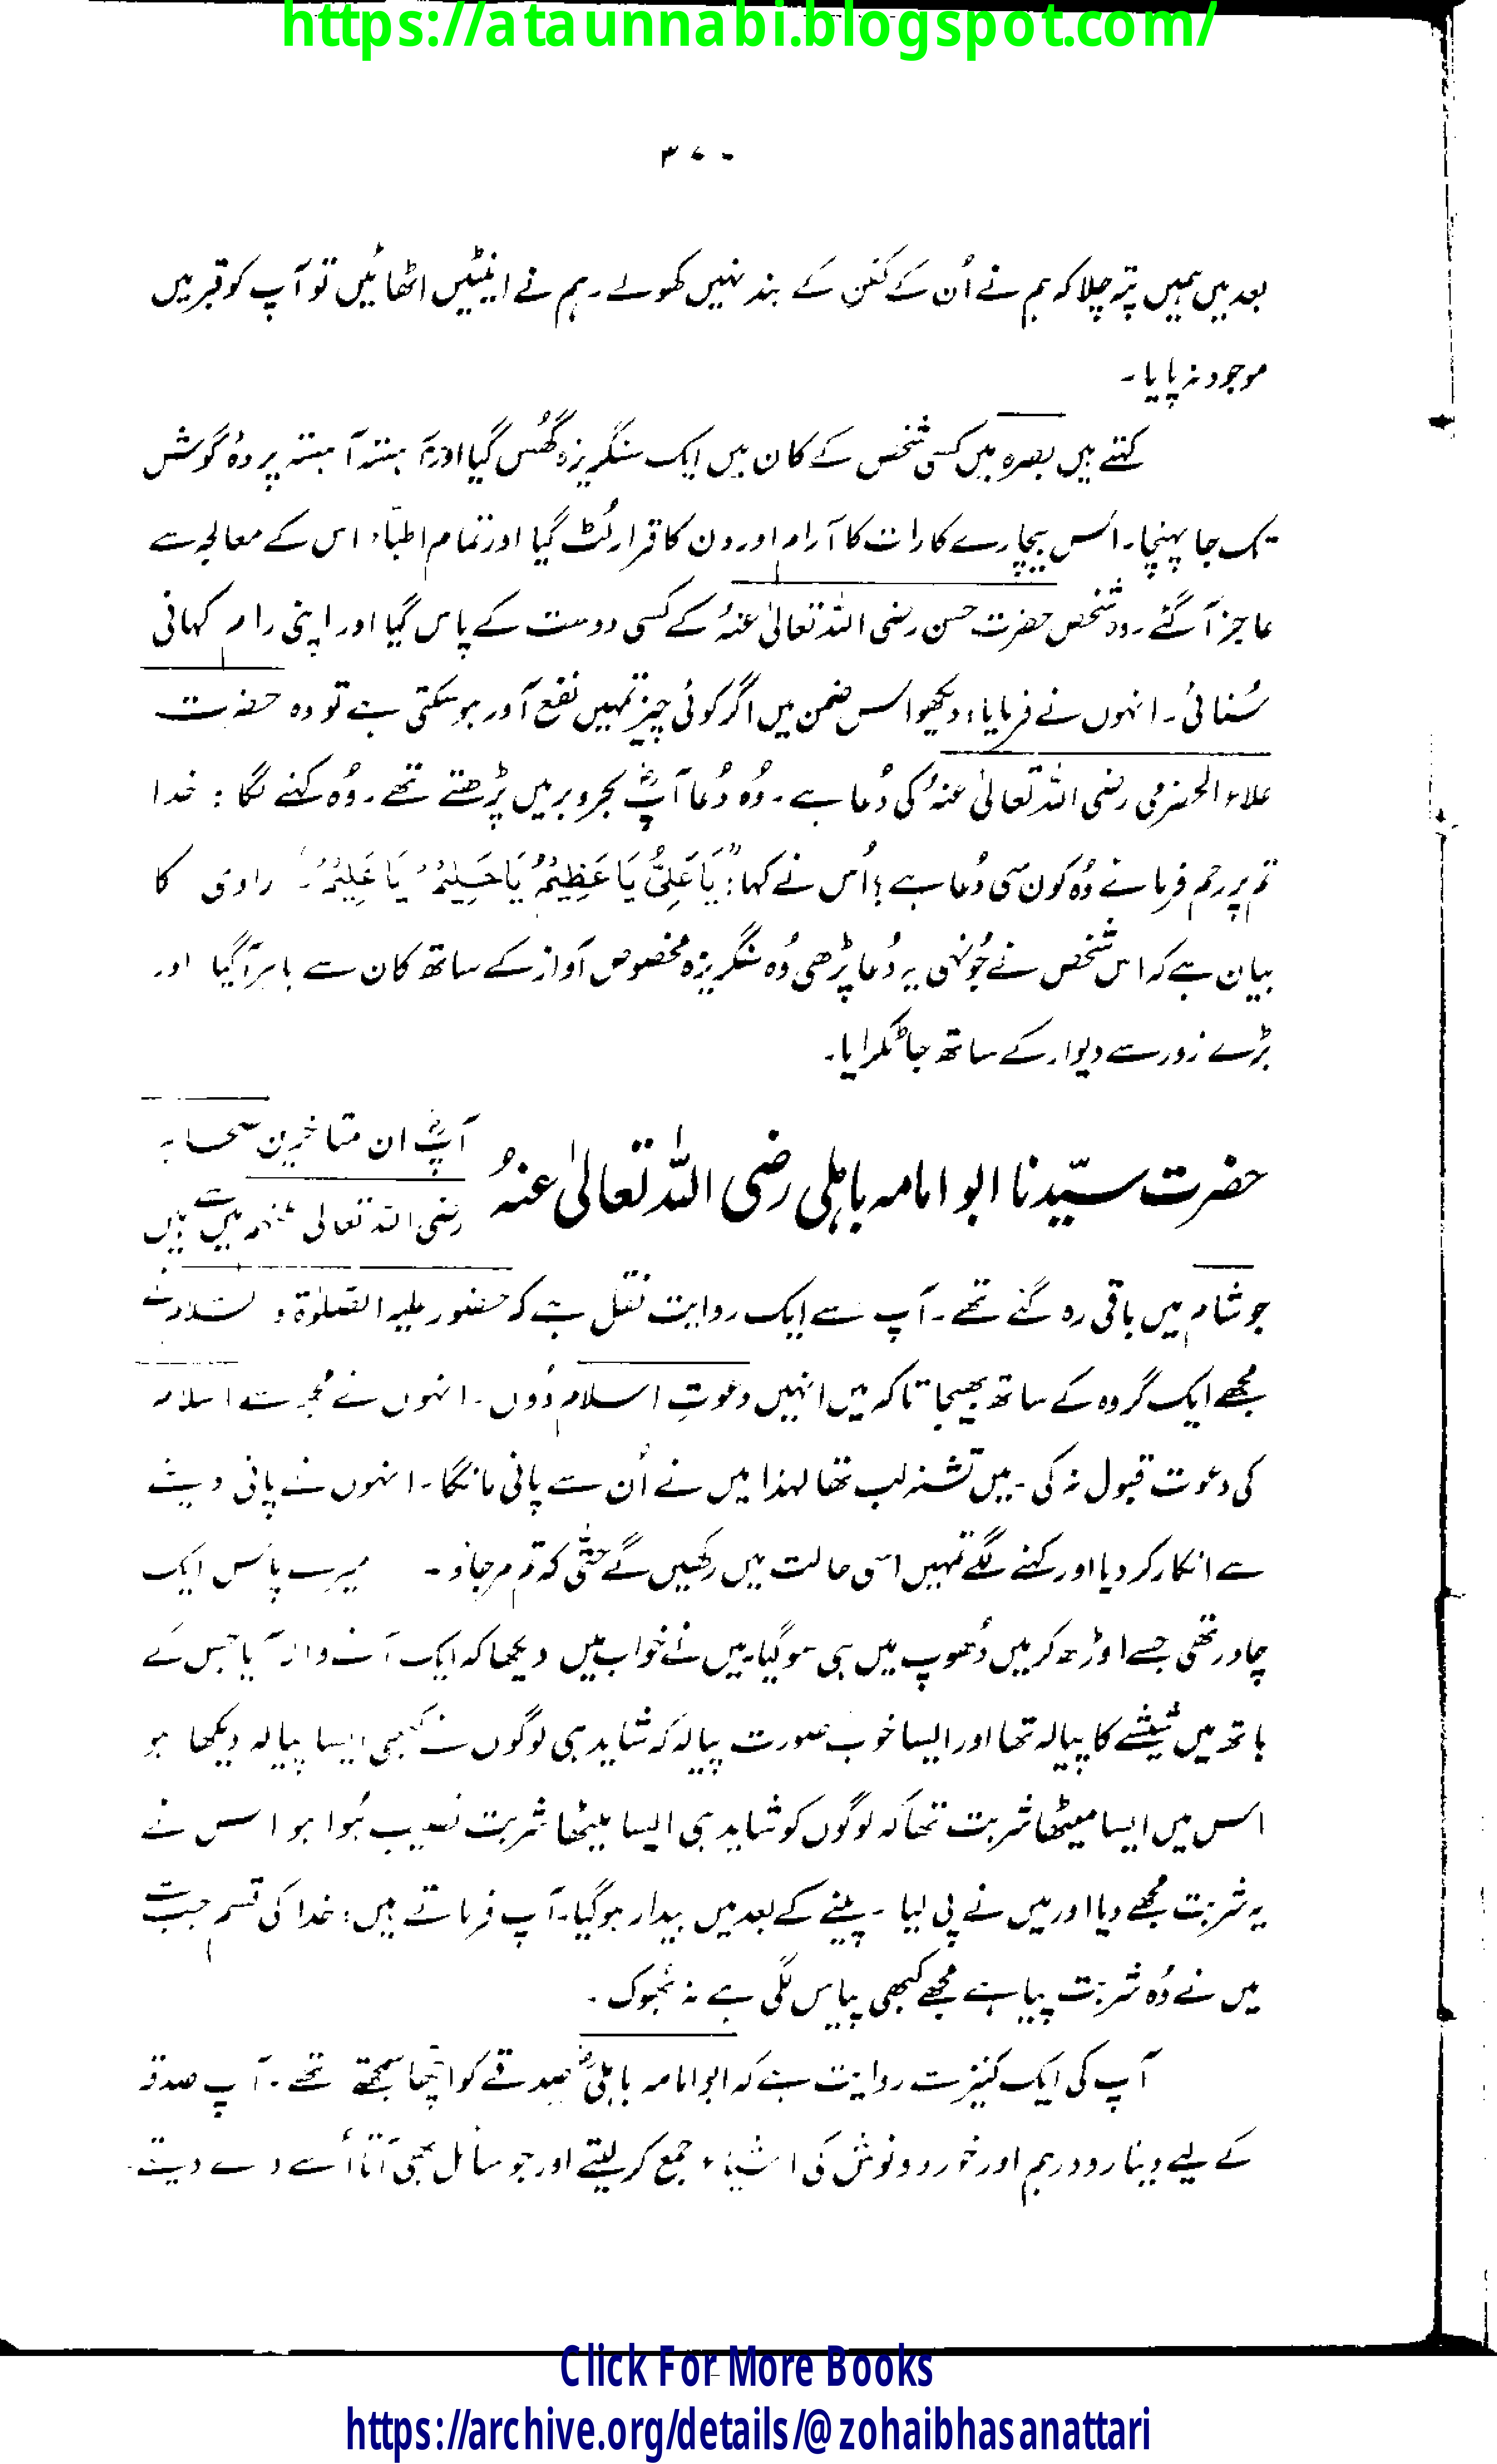 https://ataunnabi.blogspot.com/
۳۷۰
بعد میں ہمیں پتہ چلا کہ ہم نے اُن کے کفن کے بند نہیں کھولے۔ ہم نے اینٹیں اٹھائیں تو آپ کو قبر میں
موجود نہ پایا۔
کہتے ہیں بصرہ میں کسی شخص کے کان میں ایک سنگریزہ گھُس گیا اور آہستہ آہستہ پردہ گوش
تک جا پہنچا۔ اُس بیچارے کا رات کا آرام اور دن کا قرار لُٹ گیا اور تمام اطبّاء اس کے معالجہ سے
عاجز آگئے۔ وہ شخص حضرت حسن رضی اللہ تعالیٰ عنہُ کے کسی دوست کے پاس گیا اور اپنی رام کہانی
سُنائی۔ انہوں نے فرمایا، دیکھو اس ضمن میں اگر کوئی چیز تمہیں نفع آور ہو سکتی ہے تو وہ حضرت
علاء الحضرمی رضی اللہ تعالیٰ عنہُ کی دُعا ہے۔ وُہ دُعا آپؓ بحر و بر میں پڑھتے تھے۔ وُہ کہنے لگا : خدا
تم پر رحم فرمائے وُہ کون سی دُعا ہے؟ اُس نے کہا: "یَا عَلِیُّ یَا عَظِیْمُ یَا حَلِیْمُ یَا عَلِیْمُ۔" راوی کا
بیان ہے کہ اس شخص نے جُونہی یہ دُعا پڑھی وُہ سنگریزہ مخصوص آواز کے ساتھ کان سے باہر آ گیا اور
بڑے زور سے دیوار کے ساتھ جا ٹکرایا۔
حضرت سیّدنا ابو امامہ باہلی رضی اللہ تعالیٰ عنہُ
آپؓ ان متاخرین صحابہ
رضی اللہ تعالیٰ عنہم میں سے ہیں
جو شام میں باقی رہ گئے تھے۔ آپ سے ایک روایت نقل ہے کہ حضور علیہ الصّلوٰۃ و السّلام نے
مجھے ایک گروہ کے ساتھ بھیجا تاکہ میں انہیں دعوتِ اسلام دُوں۔ انہوں نے مجھ سے اسلام
کی دعوت قبول نہ کی۔ میں تشنہ لب تھا لہٰذا میں نے اُن سے پانی مانگا۔ انہوں نے پانی دینے
سے انکار کر دیا اور کہنے لگے تمہیں اسی حالت میں رکھیں گے حتّٰی کہ تم مر جاؤ۔ میرے پاس ایک
چادر تھی جسے اوڑھ کر میں دُھوپ میں ہی سو گیا۔ میں نے خواب میں دیکھا کہ ایک آنے والا آیا جس کے
ہاتھ میں شیشے کا پیالہ تھا اور ایسا خوب صورت پیالہ کہ شاید ہی لوگوں نے کبھی ایسا پیالہ دیکھا ہو
اس میں ایسا میٹھا شربت تھا کہ لوگوں کو شاید ہی ایسا میٹھا شربت نصیب ہُوا ہو اس نے
یہ شربت مجھے دیا اور میں نے پی لیا۔ پینے کے بعد میں بیدار ہو گیا۔ آپ فرماتے ہیں: خدا کی قسم جب سے
میں نے وُہ شربت پیا ہے مجھے کبھی پیاس لگی ہے نہ بھوک۔
آپ کی ایک کنیز سے روایت ہے کہ ابو امامہ باہلیؓ صدقے کو اچھا سمجھتے تھے۔ آپ صدقہ
کے لیے دینار و درہم اور خورد و نوش کی اشیاء جمع کر لیتے اور جو سائل بھی آتا اُسے دے دیتے۔
Click For More Books
https://archive.org/details/@zohaibhasanattari